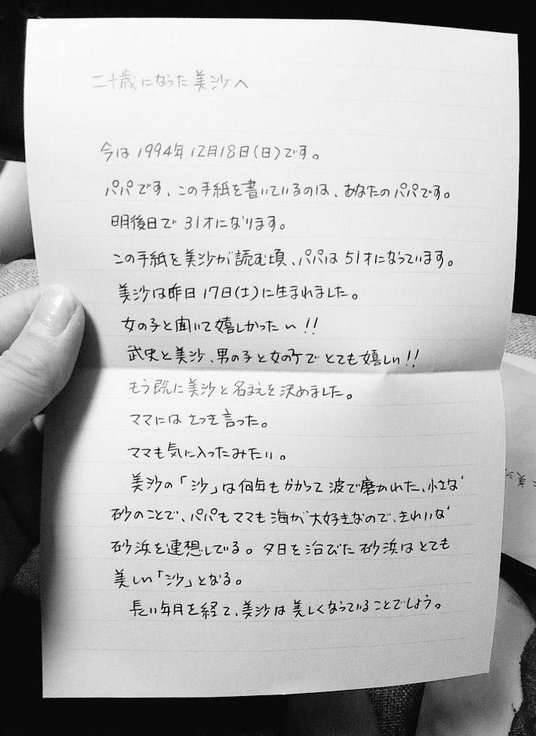 二十歳になった美沙へ
今は1994年12月18日(日)です。
パパです、この手紙を書いているのは、あなたのパパです。
明後日で31才になります。
この手紙を美沙が読む頃、パパは51才になっています。
美沙は昨日17日(土)に生まれました。
女の子と聞いて嬉しかったい!!
武史と美沙、男の子と女の子でとても嬉しい!!
もう既に美沙と名まえを決めました。
ママにはさっき言った。
ママも気に入ったみたい。
美沙の「沙」は何年もかかって波で磨かれた、小さな
砂のことで、パパもママも海が大好きなので、きれいな
砂浜を連想している。夕日を浴びた砂浜はとても
美しい「沙」となる。
長い年月を経て、美沙は美しくなっていることでしょう。